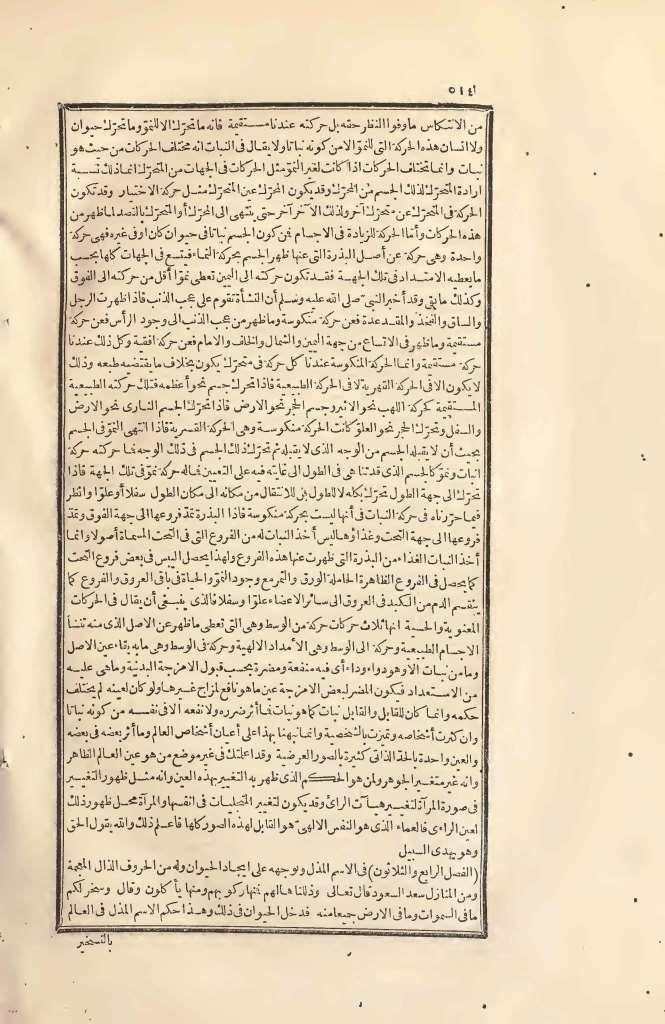 ٥١٤
من الانتكاس ما وفوا النظر حقه بل حركته عندنا مستقيمة فانه ما تحرك الا للنمو وما تحرك حيوان
ولا انسان هذه الحركة التي للنمو الا من كونه نباتا ولا يقال في النبات انه مختلف الحركات من حيث هو
نبات وانما تختلف الحركات اذا كانت لغير النمو مثل الحركات في الجهات من المتحرك انما ذلك نسبة
ارادة المتحرك لذلك الجسم من المحرك وقد يكون المحرك عين المتحرك مثل حركة الاختيار وقد تكون
الحركة في المتحرك عن متحرك آخر ولذلك الآخر آخر حتى ينتهى الى المحرك أو المتحرك بالقصد لما ظهر من
هذه الحركات وأما الحركة للزيادة في الاجسام فمن كون الجسم نباتا في حيوان كان أو في غيره فهي حركة
واحدة وهي حركة عن أصل البذرة التي عنها ظهر الجسم بحركة النماء فيتسع في الجهات كلها بحسب
ما يعطيه الامتداد في تلك الجهة فقد تكون حركته الى اليمين تعطي نموا أقل من حركته الى الفوق
وكذلك ما بقي وقد أخبر النبي صلى الله عليه وسلم أن النشأة تقوم على عجب الذنب فاذا ظهرت الرجل
والساق والفخذ والمقعدة فعن حركة منكوسة وما ظهر من عجب الذنب الى وجود الرأس فعن حركة
مستقيمة وما ظهر في الاتساع من جهة اليمين والشمال والخلف والامام فعن حركة افقية وكل ذلك عندنا
حركة مستقيمة وانما الحركة المنكوسة عندنا كل حركة في متحرك يكون بخلاف ما يقتضيه طبعه وذلك
لا يكون الا في الحركة القهرية لا في الحركة الطبيعية فاذا تحرك جسم نحو أعظمه فتلك حركته الطبيعية
المستقيمة كحركة اللهب نحو الاثير وجسم الحجر نحو الارض فاذا تحرك الجسم النارى نحو الارض
والسفل وتحرك الحجر نحو العلو كانت الحركة منكوسة وهي الحركة القسرية فاذا انتهى النمو في الجسم
بحيث أن لا يقبله الجسم من الوجه الذي لا يقبله ثم تحرك ذلك الجسم في ذلك الوجه فما حركته حركة
انبات ونمو كالجسم الذي قد تناهى في الطول الى غايته فيه على التعيين فما له حركة نمو في تلك الجهة فاذا
تحرك الى جهة الطول تحرك بكله لا للطول بل للانتقال من مكانه الى مكان الطول سفلا أو علوا وانظر
فيما حررناه في حركة النبات في أنها ليست بحركة منكوسة فاذا البذرة تمد فروعها الى جهة الفوق وتمد
فروعها الى جهة التحت وغذاؤها ليس أخذ النبات له من الفروع التي في التحت المسماة أصولا وانما
أخذ النبات الغذاء من البذرة التي ظهرت عنها هذه الفروع ولهذا يحصل اليبس في بعض فروع التحت
كما يحصل في الفروع الظاهرة الحاملة الورق والثمر مع وجود النمو والحياة في باقي العروق والفروع كما
ينقسم الدم من الكبد في العروق الى سائر الاعضاء علوا وسفلا فالذي ينبغي أن يقال في الحركات
المعنوية والحسية انها ثلاث حركات حركة من الوسط وهي التي تعطي ما ظهر عن الاصل الذي منه تنشأ
الاجسام الطبيعية وحركة الى الوسط وهي الأمداد الالهية وحركة في الوسط وهي ما به بقاء عين الاصل
وما من نبات الا وهو دواء وداء أي فيه منفعة ومضرة بحسب قبول الامزجة البدنية وما هي عليه
من الاستعداد فيكون المضر لبعض الامزجة عين ما هو نافع لمزاج غيرها ولو كان لعينه لم يختلف
حكمه وانما كان للقابل والقابل نبات كما هو نبات فما أثر ضرره ولا نفعه الا في نفسه من كونه نباتا
وان كثرت أشخاصه وتميزت بالشخصية وانما نبهنا بهذا على أعيان أشخاص العالم وما أثر بعضه في بعضه
والعين واحدة بالحد الذاتى كثيرة بالصور العرضية وقد أعلمتك في غير موضع من هو عين العالم الظاهر
وانه غير متغير الجوهر ولمن هو الحكم الذي ظهر به التغيير بهذه العين وانه مثل ظهور التغيير
في صورة المرآة لتغير هيآت الرائى وقد يكون لتغيير التجليات في انفسها والمرآة محل ظهور ذلك
لعين الراءى فالعماء الذي هو النفس الالهي هو القابل لهذه الصور كلها فاعلم ذلك والله يقول الحق
وهو يهدى السبيل
(الفصل الرابع والثلاثون) في الاسم المذل وتوجهه على ايجاد الحيوان وله من الحروف الذال المعجمة
ومن المنازل سعد السعود قال تعالى وذللناها لهم فمنها ركوبهم ومنها يأكلون وقال وسخر لكم
ما في السموات وما في الارض جميعا منه فدخل الحيوان في ذلك وهذا حكم الاسم المذل في العالم
بالتسخير